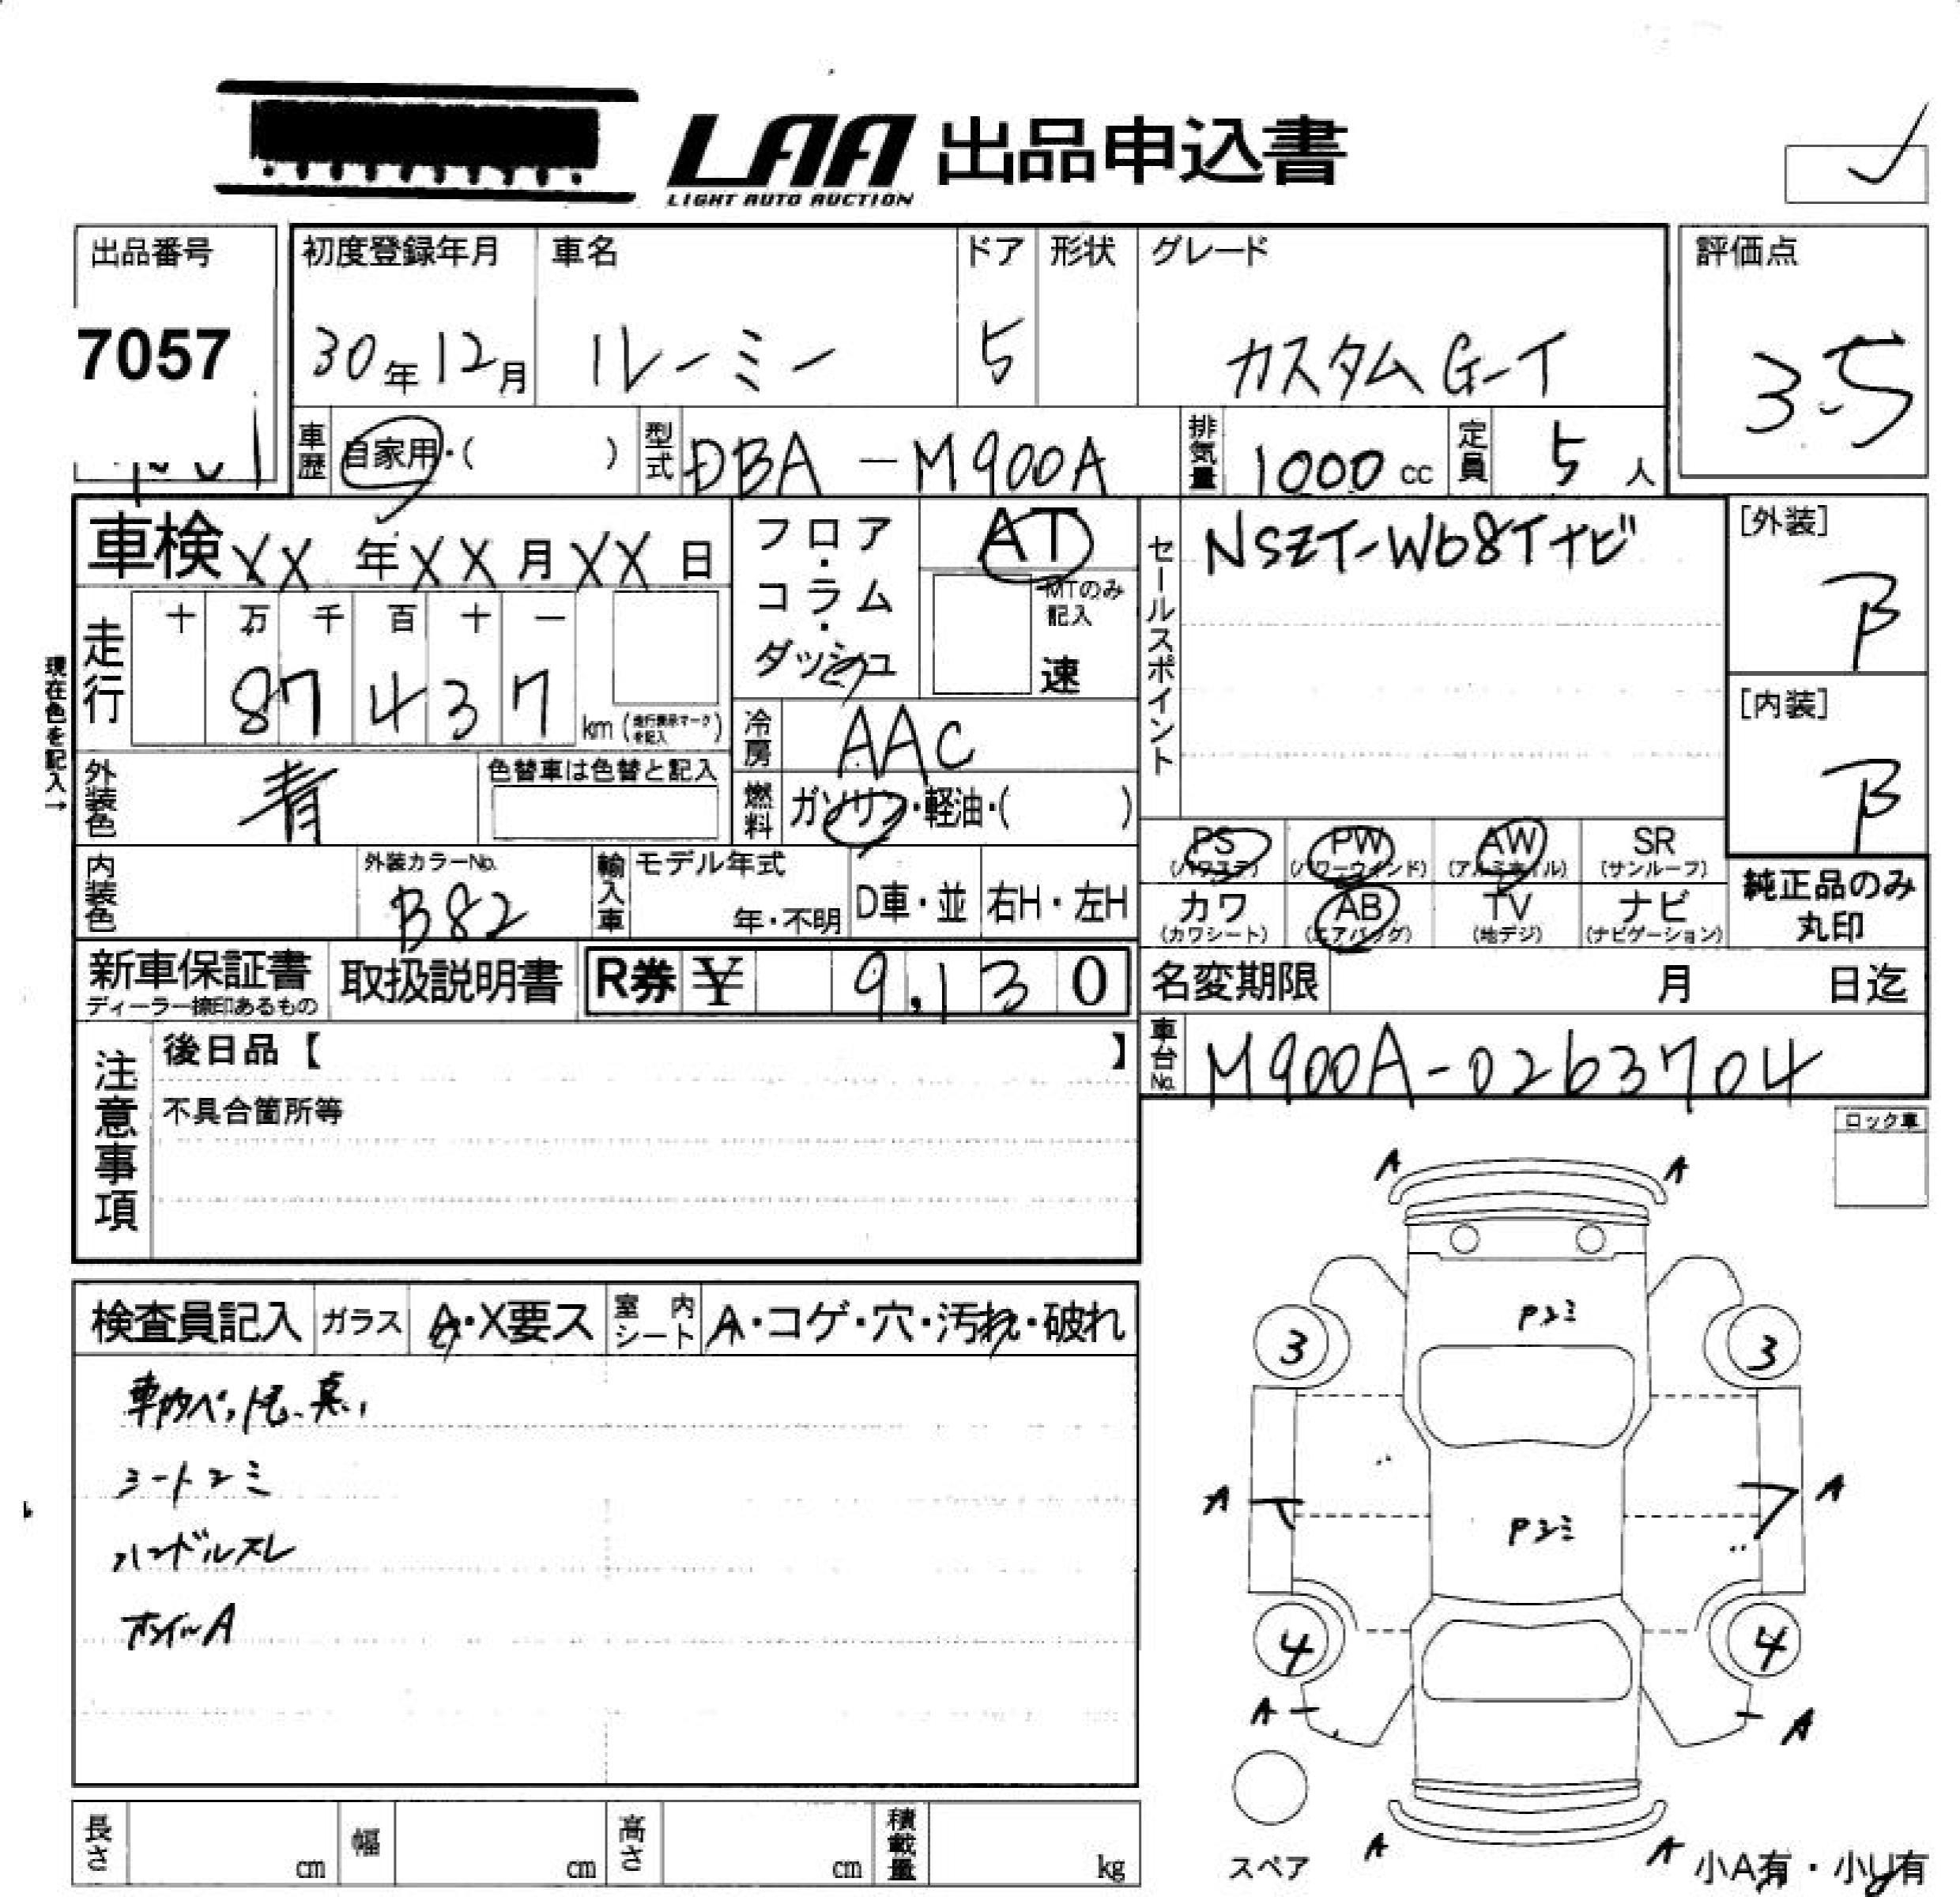 LAA 出品申込書
LIGHT AUTO AUCTION
出品番号
7057
初度登録年月 車名 ドア 形状 グレード
30年12月 ルーミー 5 カスタムG-T
評価点
3.5
車歴 自家用・( ) 型式 DBA-M900A 排気量 1000cc 定員 5人
車検 XX年XX月XX日
フロア・コラム・ダッシュ
AT
MTのみ記入
速
セールスポイント
NSZT-W68Tナビ
[外装]
B
[内装]
B
走行 十 万 千 百 十 一
87437 km (走行表示マークを記入)
現在色を記入→
冷房 AAC
外装色 青 色替車は色替と記入
燃料 ガソリン・軽油・( )
内装色 外装カラーNo.
B82
輸入車 モデル年式
年・不明 D車・並 右H・左H
PS (パワステ) PW (パワーウインド) AW (アルミホイル) SR (サンルーフ)
カワ (カワシート) AB (エアバッグ) TV (地デジ) ナビ (ナビゲーション)
純正品のみ
丸印
新車保証書
ディーラー捺印あるもの
取扱説明書 R券 ¥ 9,130
名変期限 月 日迄
車台No. M900A-0263704
注意事項
後日品【 】
不具合箇所等
ロック車
検査員記入 ガラス A・X要ス 室内シート A・コゲ・穴・汚れ・破れ
シートシミ
ハンドルスレ
ホイールA
A A
Pシミ
3 3
A A
Pシミ
4 4
A A
A A
スペア
小A有・小U有
長さ cm 幅 cm 高さ cm 積載量 kg